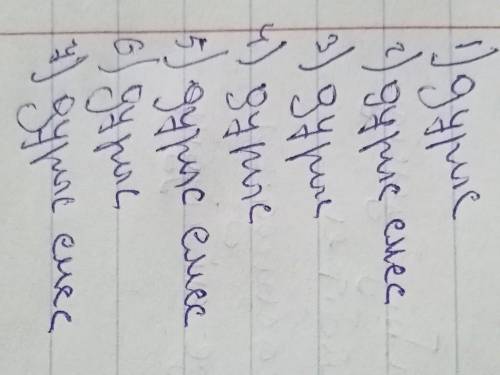 1) дұрыс
2) дұрыс емес
3) дұрыс
4) дұрыс
5) дұрыс емес
6) дұрыс
7) дұрыс емес